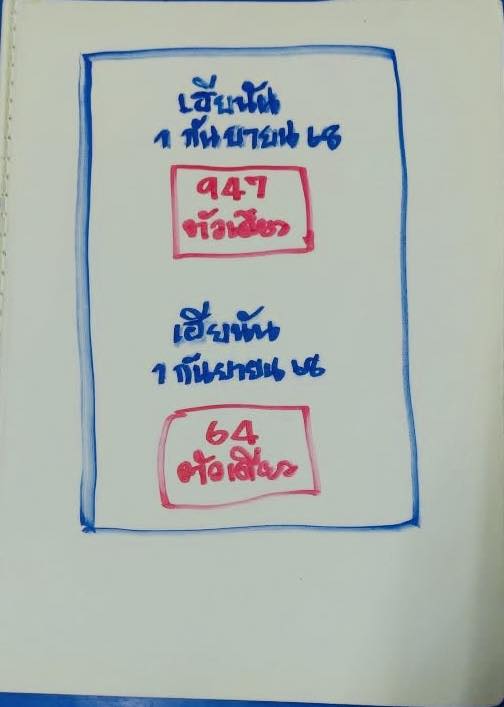 เฮียนัน
1 กันยายน 68
947
ตัวเดียว
เฮียนัน
1 กันยายน 68
64
ตัวเดียว